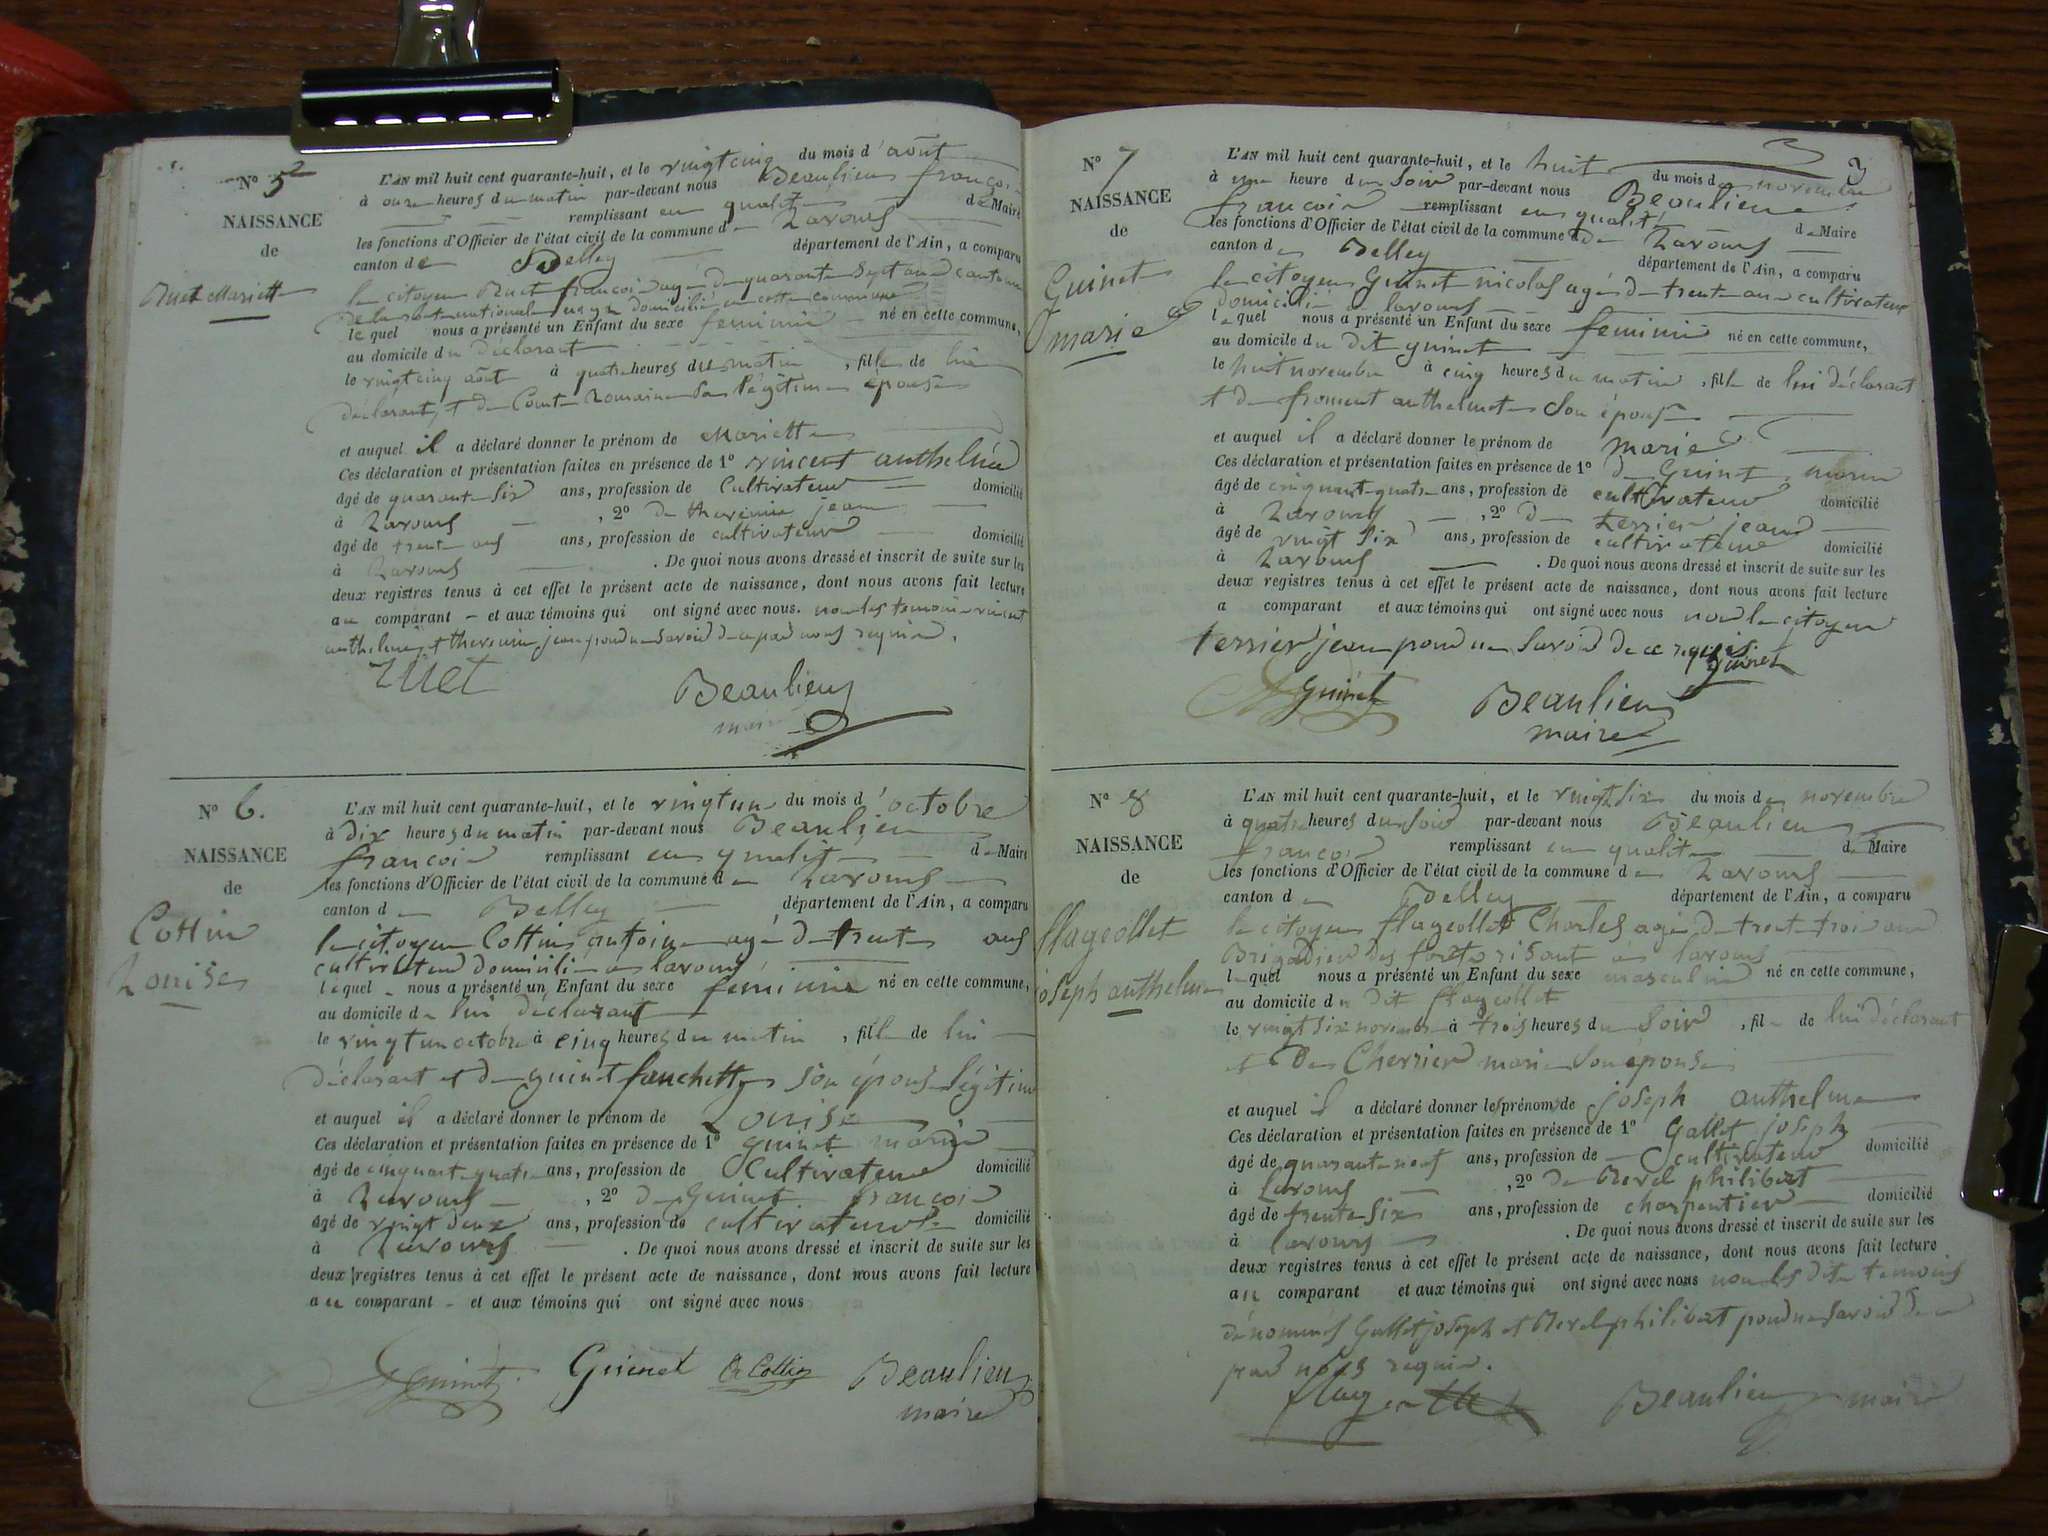 N° 5
NAISSANCE
de
Ruet Mariette
L'AN mil huit cent quarante-huit, et le vingt cinq du mois d'août
à onze heures du matin par-devant nous Beaulieu françois
remplissant en qualité de Maire
les fonctions d'Officier de l'état civil de la commune de Lavours
canton de Belley département de l'Ain, a comparu
le citoyen Ruet françois agé de quarante sept ans
domicilié en cette commune
lequel nous a présenté un Enfant du sexe feminin né en cette commune,
au domicile du déclarant
le vingt cinq août à quatre heures du matin, fille de lui
déclarant et de Romaine Sa légitime épouse
et auquel il a déclaré donner le prénom de Mariette
Ces déclaration et présentation faites en présence de 1° vincent anthelme
âgé de quarante six ans, profession de Cultivateur domicilié
à Lavours, 2° de jean
âgé de trente ans, profession de cultivateur domicilié
à Lavours. De quoi nous avons dressé et inscrit de suite sur les
deux registres tenus à cet effet le présent acte de naissance, dont nous avons fait lecture
au comparant et aux témoins qui ont signé avec nous. non les temoins vincent
anthelme et jean pour ne savoir de ce par nous requis.
Ruet
Beaulieu
maire
N° 6.
NAISSANCE
de
Cottin
Louise
L'AN mil huit cent quarante-huit, et le vingt un du mois d'octobre
à dix heures du matin par-devant nous Beaulieu
francois remplissant en qualité de Maire
les fonctions d'Officier de l'état civil de la commune de Lavours
canton de Belley département de l'Ain, a comparu
le citoyen Cottin antoine agé de trente ans
cultivateur domicilié a lavours
lequel nous a présenté un Enfant du sexe feminin né en cette commune,
au domicile de lui déclarant
le vingt un octobre à cinq heures du matin, fille de lui
déclarant et de guinet fanchette son épouse légitime
et auquel il a déclaré donner le prénom de Louise
Ces déclaration et présentation faites en présence de 1° guinet marin
âgé de cinquante quatre ans, profession de Cultivateur domicilié
à Lavours, 2° de Guinet francois
âgé de vingt deux ans, profession de cultivateur domicilié
à Lavours. De quoi nous avons dressé et inscrit de suite sur les
deux registres tenus à cet effet le présent acte de naissance, dont nous avons fait lecture
au comparant et aux témoins qui ont signé avec nous
guinet Guinet Cottin Beaulieu
maire
3
N° 7
NAISSANCE
de
Guinet
marie
L'AN mil huit cent quarante-huit, et le huit du mois de novembre
à une heure du Soir par-devant nous Beaulieu
francois remplissant en qualité de Maire
les fonctions d'Officier de l'état civil de la commune de Lavours
canton de Belley département de l'Ain, a comparu
le citoyen Guinet nicolas agé de trente ans cultivateur
domicilié a lavours
lequel nous a présenté un Enfant du sexe feminin né en cette commune,
au domicile du dit guinet
le huit novembre à cinq heures du matin, fille de lui déclarant
et de froment anthelmette Son épouse
et auquel il a déclaré donner le prénom de marie
Ces déclaration et présentation faites en présence de 1° de Guinet marin
âgé de cinquante quatre ans, profession de cultivateur domicilié
à Lavours, 2° de terrier jean
âgé de vingt six ans, profession de cultivateur domicilié
à Lavours. De quoi nous avons dressé et inscrit de suite sur les
deux registres tenus à cet effet le présent acte de naissance, dont nous avons fait lecture
a comparant et aux témoins qui ont signé avec nous non le citoyen
terrier jean pour ne Savoir de ce requis
guinet
Guinet Beaulieu
maire
N° 8
NAISSANCE
de
flageollet
joseph anthelme
L'AN mil huit cent quarante-huit, et le vingt six du mois de novembre
à quatre heures du Soir par-devant nous Beaulieu
francois remplissant en qualité de Maire
les fonctions d'Officier de l'état civil de la commune de Lavours
canton de Belley département de l'Ain, a comparu
le citoyen flageollet Charles agé de trente trois ans
Brigadier des foret risant a lavours
lequel nous a présenté un Enfant du sexe masculin né en cette commune,
au domicile du dit flageollet
le vingt six novembre à trois heures du Soir, fils de lui déclarant
et De Cherrier marie Son épouse
et auquel il a déclaré donner les prénoms de joseph anthelme
Ces déclaration et présentation faites en présence de 1° Gallet joseph
âgé de quarante neuf ans, profession de Cultivateur domicilié
à Lavours, 2° de Merel philibert
âgé de trente six ans, profession de charpentier domicilié
à lavours. De quoi nous avons dressé et inscrit de suite sur les
deux registres tenus à cet effet le présent acte de naissance, dont nous avons fait lecture
au comparant et aux témoins qui ont signé avec nous non les dits temoins
dénommés Gallet joseph et Merel philibert pour ne savoir de ce
par nous requis.
flageollet Beaulieu maire